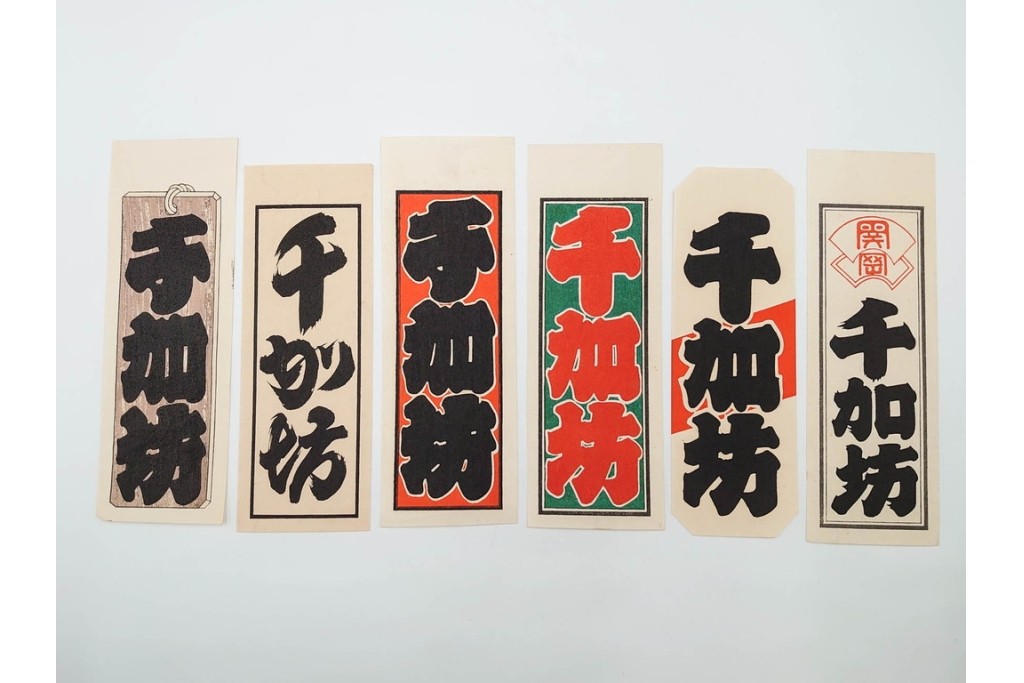 千加坊
千加坊
千加坊
千加坊
千加坊
関岡
千加坊